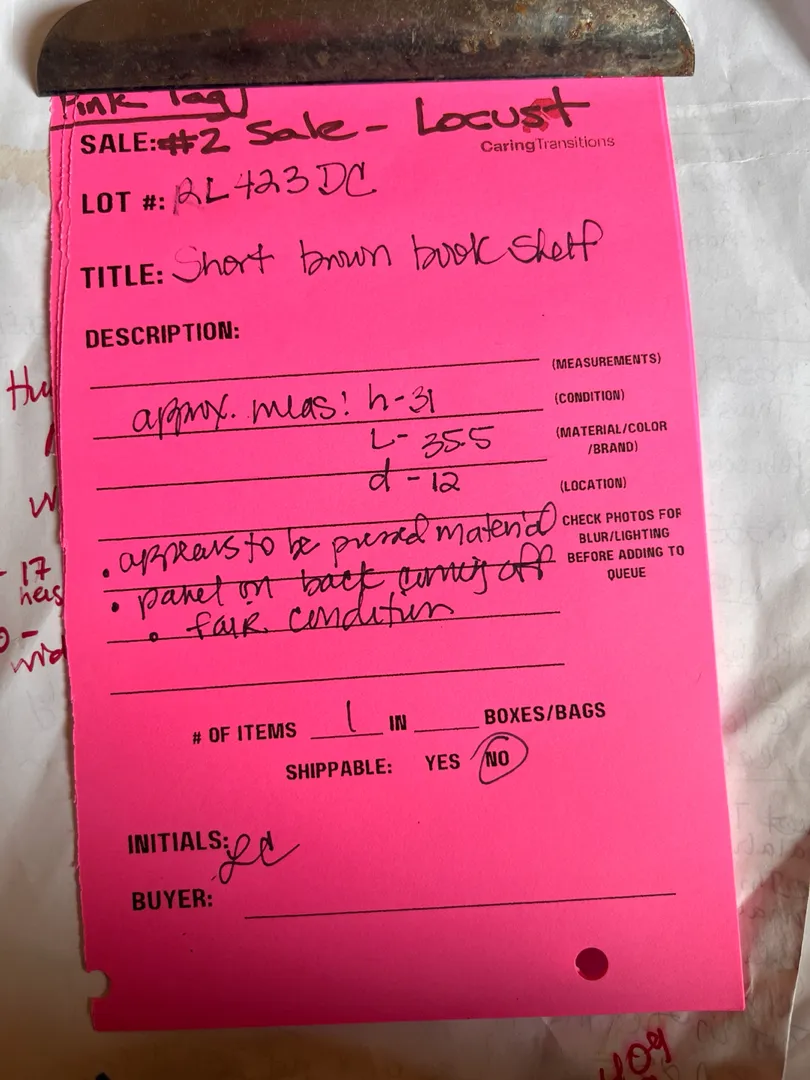 Pink Tag
SALE: #2 Sale - Locust
CaringTransitions
LOT #: 2L423DC
TITLE: Short brown book shelf
DESCRIPTION:
(MEASUREMENTS)
approx. meas: h-31
(CONDITION)
L- 35.5
(MATERIAL/COLOR
/BRAND)
d - 12
(LOCATION)
• appears to be pressed material
CHECK PHOTOS FOR
BLUR/LIGHTING
BEFORE ADDING TO
QUEUE
• panel on back coming off
• fair condition
# OF ITEMS 1 IN BOXES/BAGS
SHIPPABLE: YES NO
INITIALS:
BUYER:
- 17